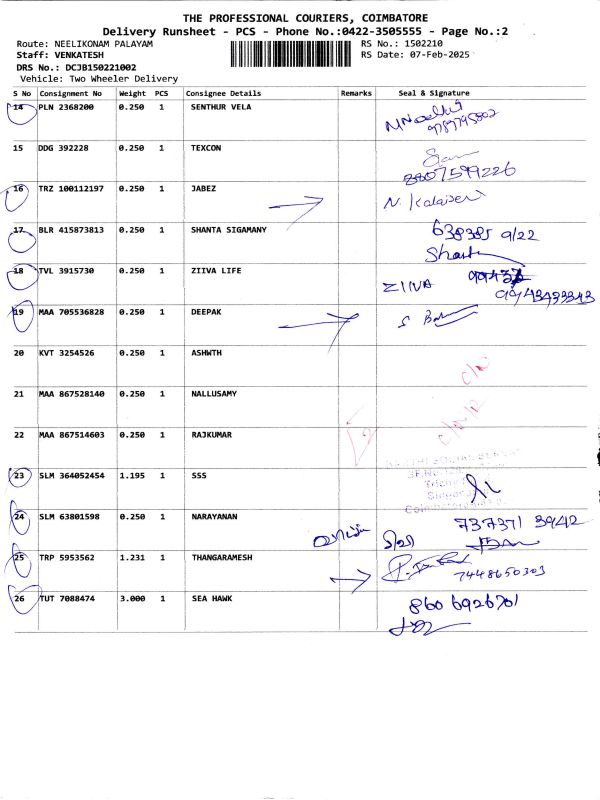 THE PROFESSIONAL COURIERS, COIMBATORE
Delivery Runsheet - PCS - Phone No.:0422-3505555 - Page No.:2
Route: NEELIKONAM PALAYAM
RS No.: 1502210
Staff: VENKATESH
RS Date: 07-Feb-2025
DRS No.: DCJB150221002
Vehicle: Two Wheeler Delivery
S No Consignment No Weight PCS Consignee Details Remarks Seal & Signature
14 PLN 2368200 0.250 1 SENTHUR VELA
15 DDG 392228 0.250 1 TEXCON
8807599226
16 TRZ 100112197 0.250 1 JABEZ
17 BLR 415873813 0.250 1 SHANTA SIGAMANY 638385 9122
18 TVL 3915730 0.250 1 ZIIVA LIFE
ZIIVA
19 MAA 705536828 0.250 1 DEEPAK
20 KVT 3254526 0.250 1 ASHWTH
21 MAA 867528140 0.250 1 NALLUSAMY
22 MAA 867514603 0.250 1 RAJKUMAR
23 SLM 364052454 1.195 1 SSS
24 SLM 63801598 0.250 1 NARAYANAN
737371 3942
25 TRP 5953562 1.231 1 THANGARAMESH
7448650303
26 TUT 7088474 3.000 1 SEA HAWK 860 6926701